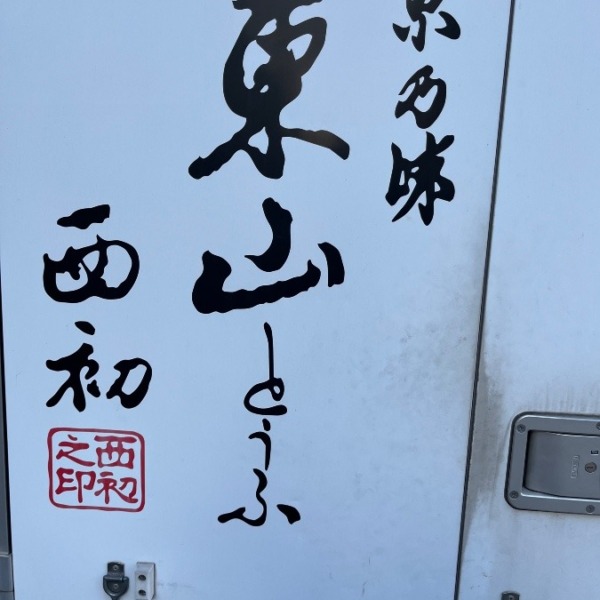 京乃味
東山とうふ
西初
西初之印